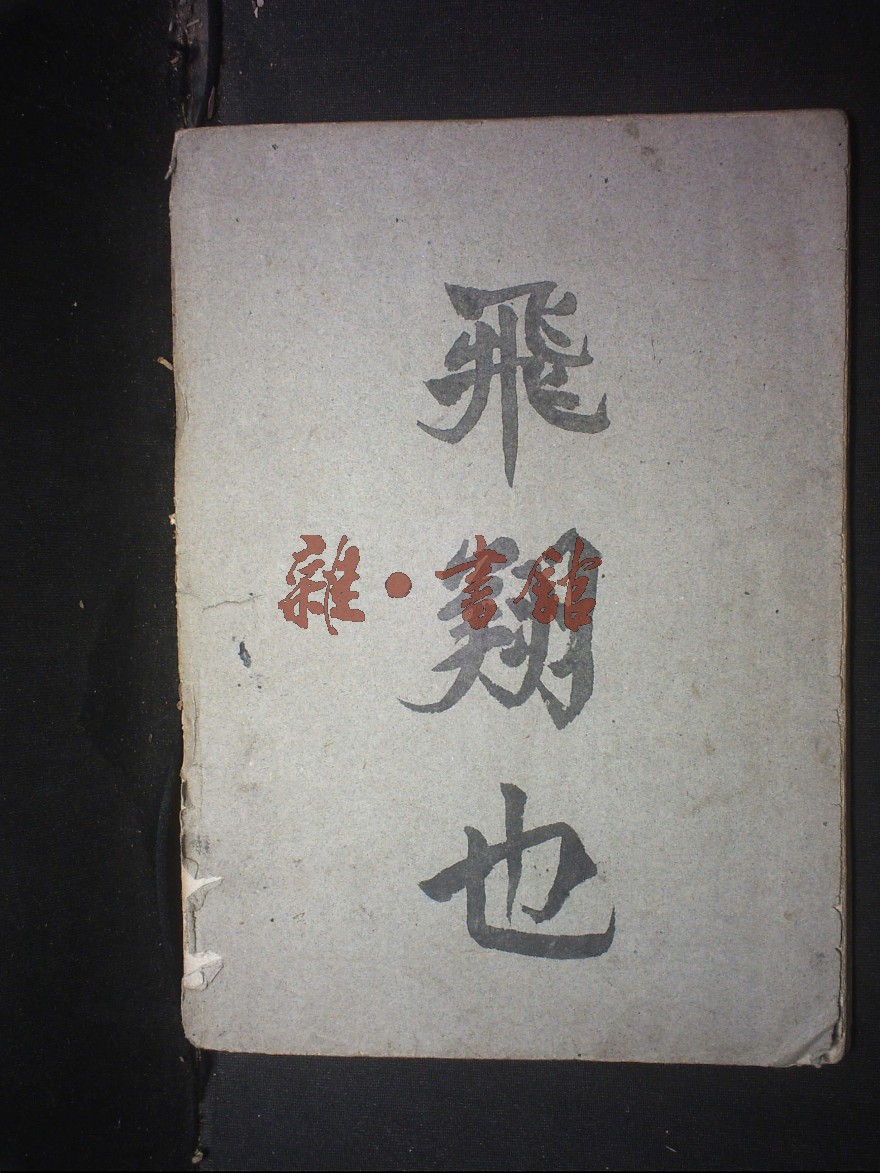 飛翔也
雜·書館